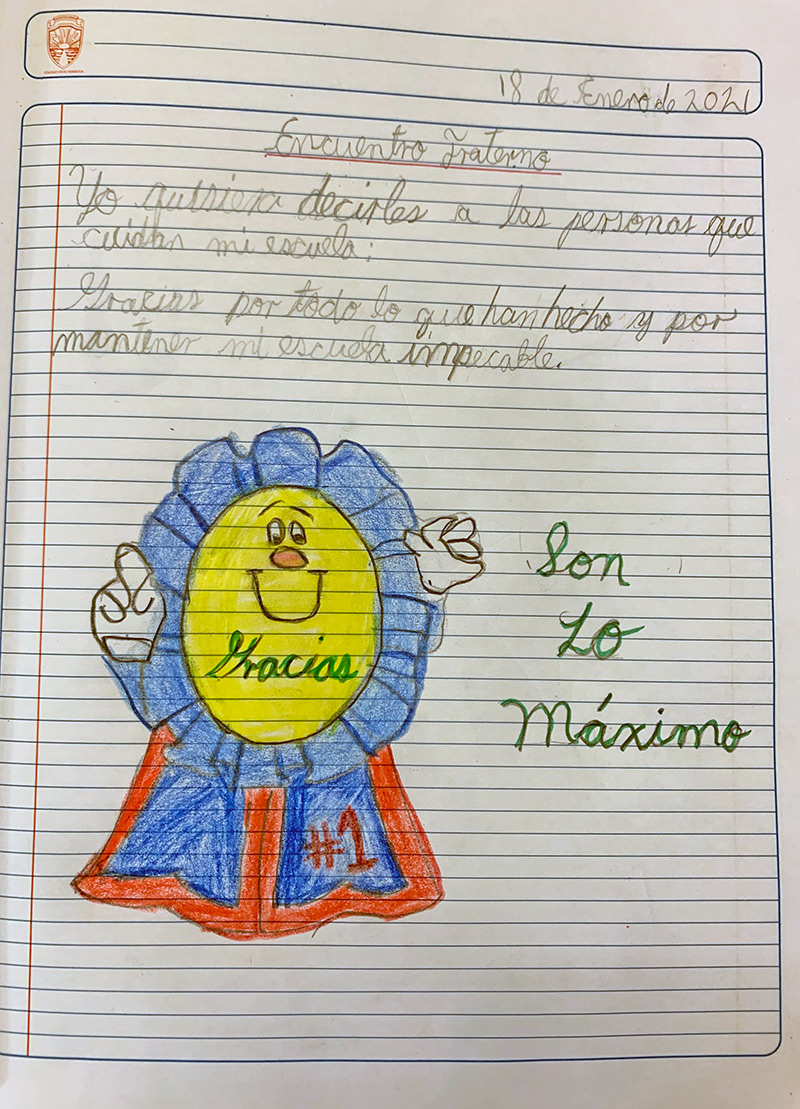 18 de Enero de 2021
Encuentro Fraterno
Yo quisiera decirles a las personas que
cuidan mi escuela:
Gracias por todo lo que han hecho y por
mantener mi escuela impecable.
Son
Lo
Gracias
Máximo
#1